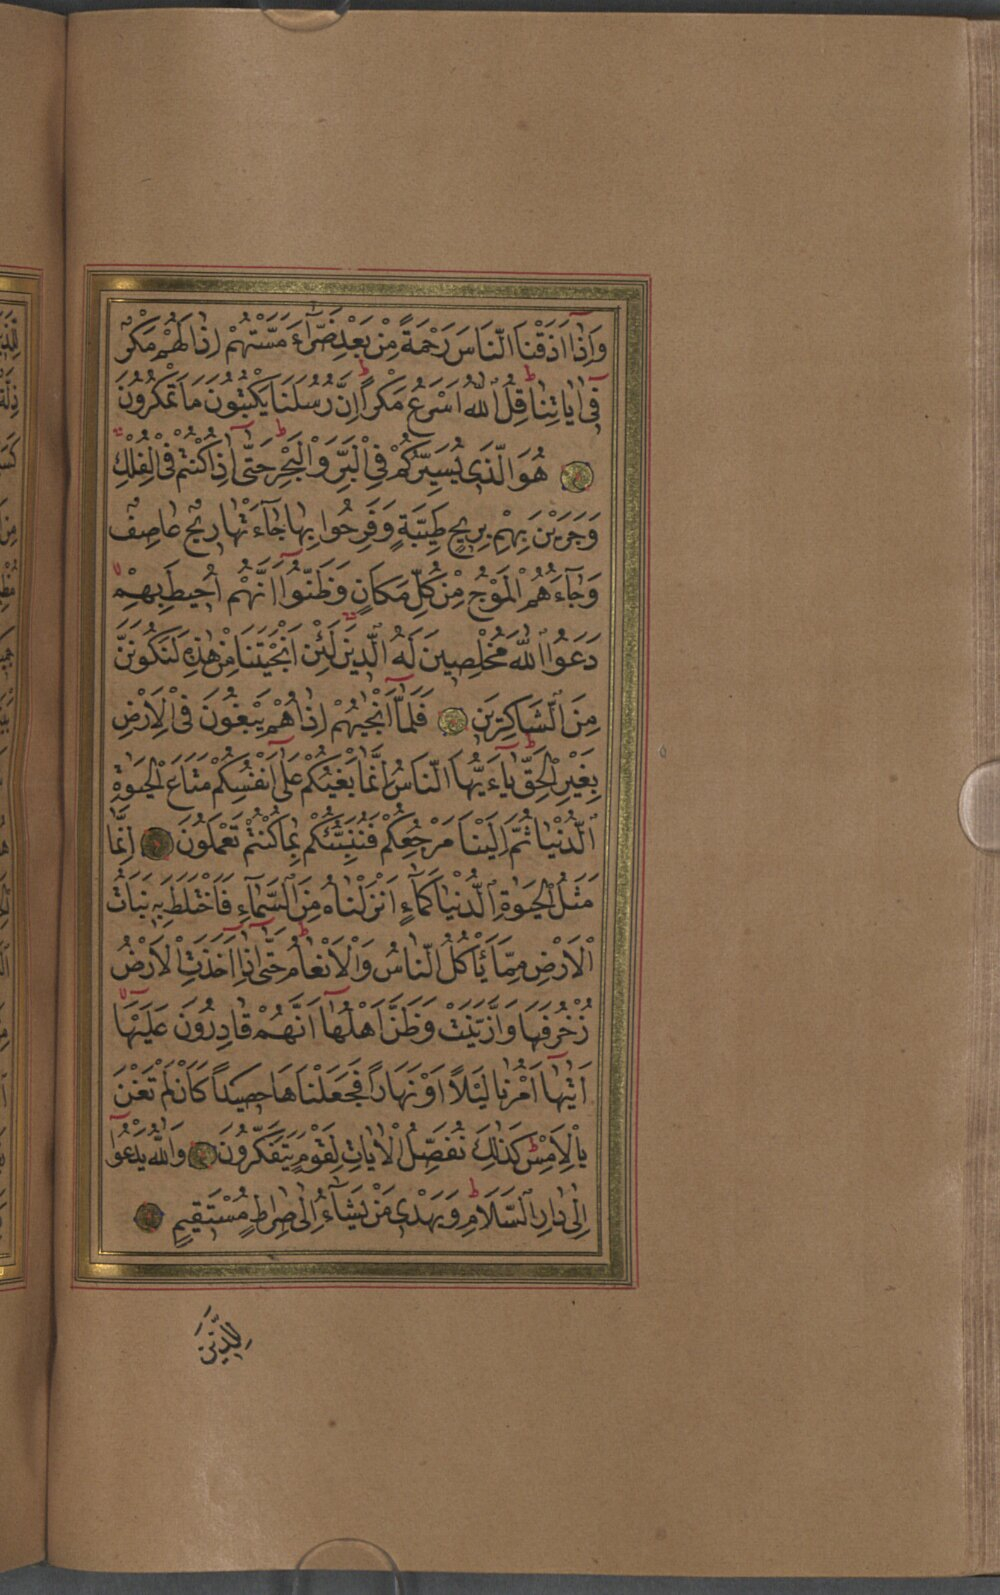 وَاِذَٓا اَذَقْنَا النَّاسَ رَحْمَةً مِنْ بَعْدِ ضَرَّٓاءَ مَسَّتْهُمْ اِذَا لَهُمْ مَكْرٌ
فٖٓى اٰيَاتِنَاؕ قُلِ اللّٰهُ اَسْرَعُ مَكْراًؕ اِنَّ رُسُلَنَا يَكْتُبُونَ مَا تَمْكُرُونَ
هُوَ الَّذٖى يُسَيِّرُكُمْ فِى الْبَرِّ وَالْبَحْرِؕ حَتّٰٓى اِذَا كُنْتُمْ فِى الْفُلْكِ
وَجَرَيْنَ بِهِمْ بِرٖيحٍ طَيِّبَةٍ وَفَرِحُوا بِهَا جَٓاءَتْهَا رٖيحٌ عَاصِفٌ
وَجَٓاءَهُمُ الْمَوْجُ مِنْ كُلِّ مَكَانٍ وَظَنُّٓوا اَنَّهُمْ اُحٖيطَ بِهِمْ
دَعَوُا اللّٰهَ مُخْلِصٖينَ لَهُ الدّٖينَ لَئِنْ اَنْجَيْتَنَا مِنْ هٰذِهٖ لَنَكُونَنَّ
مِنَ الشَّاكِرٖينَ فَلَمَّٓا اَنْجٰيهُمْ اِذَا هُمْ يَبْغُونَ فِى الْاَرْضِ
بِغَيْرِ الْحَقِّؕ يَٓا اَيُّهَا النَّاسُ اِنَّمَا بَغْيُكُمْ عَلٰٓى اَنْفُسِكُمْ مَتَاعَ الْحَيٰوةِ
الدُّنْيَا ثُمَّ اِلَيْنَا مَرْجِعُكُمْ فَنُنَبِّئُكُمْ بِمَا كُنْتُمْ تَعْمَلُونَ اِنَّمَا
مَثَلُ الْحَيٰوةِ الدُّنْيَا كَمَٓاءٍ اَنْزَلْنَاهُ مِنَ السَّمَٓاءِ فَاخْتَلَطَ بِهٖ نَبَاتُ
الْاَرْضِ مِمَّا يَأْكُلُ النَّاسُ وَالْاَنْعَامُؕ حَتّٰٓى اِذَٓا اَخَذَتِ الْاَرْضُ
زُخْرُفَهَا وَازَّيَّنَتْ وَظَنَّ اَهْلُهَٓا اَنَّهُمْ قَادِرُونَ عَلَيْهَٓا
اَتٰيهَٓا اَمْرُنَا لَيْلاً اَوْ نَهَاراً فَجَعَلْنَاهَا حَصٖيداً كَاَنْ لَمْ تَغْنَ
بِالْاَمْسِؕ كَذٰلِكَ نُفَصِّلُ الْاٰيَاتِ لِقَوْمٍ يَتَفَكَّرُونَ وَاللّٰهُ يَدْعُٓوا
اِلٰى دَارِ السَّلَامِؕ وَيَهْدٖى مَنْ يَشَٓاءُ اِلٰى صِرَاطٍ مُسْتَقٖيمٍ
لِلَّذٖينَ